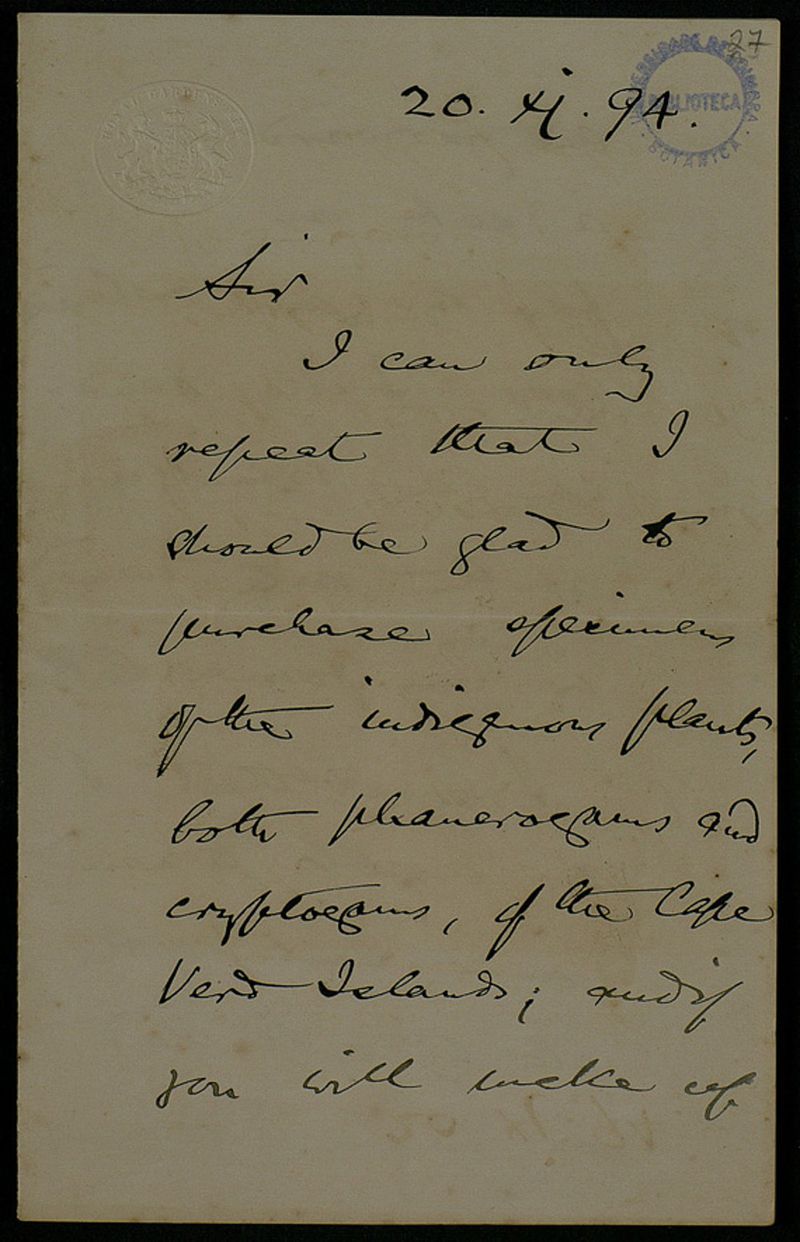 27
20. xj. 94.
UNIVERSIDADE DE COIMBRA
BIBLIOTECA
BOTANICA
ROYAL GARDENS KEW
Sir
I can only
repeat that I
should be glad to
purchase specimens
of the indigenous plants,
both phanerogams and
cryptogams, of the Cape
Verd Islands; and if
you will make up